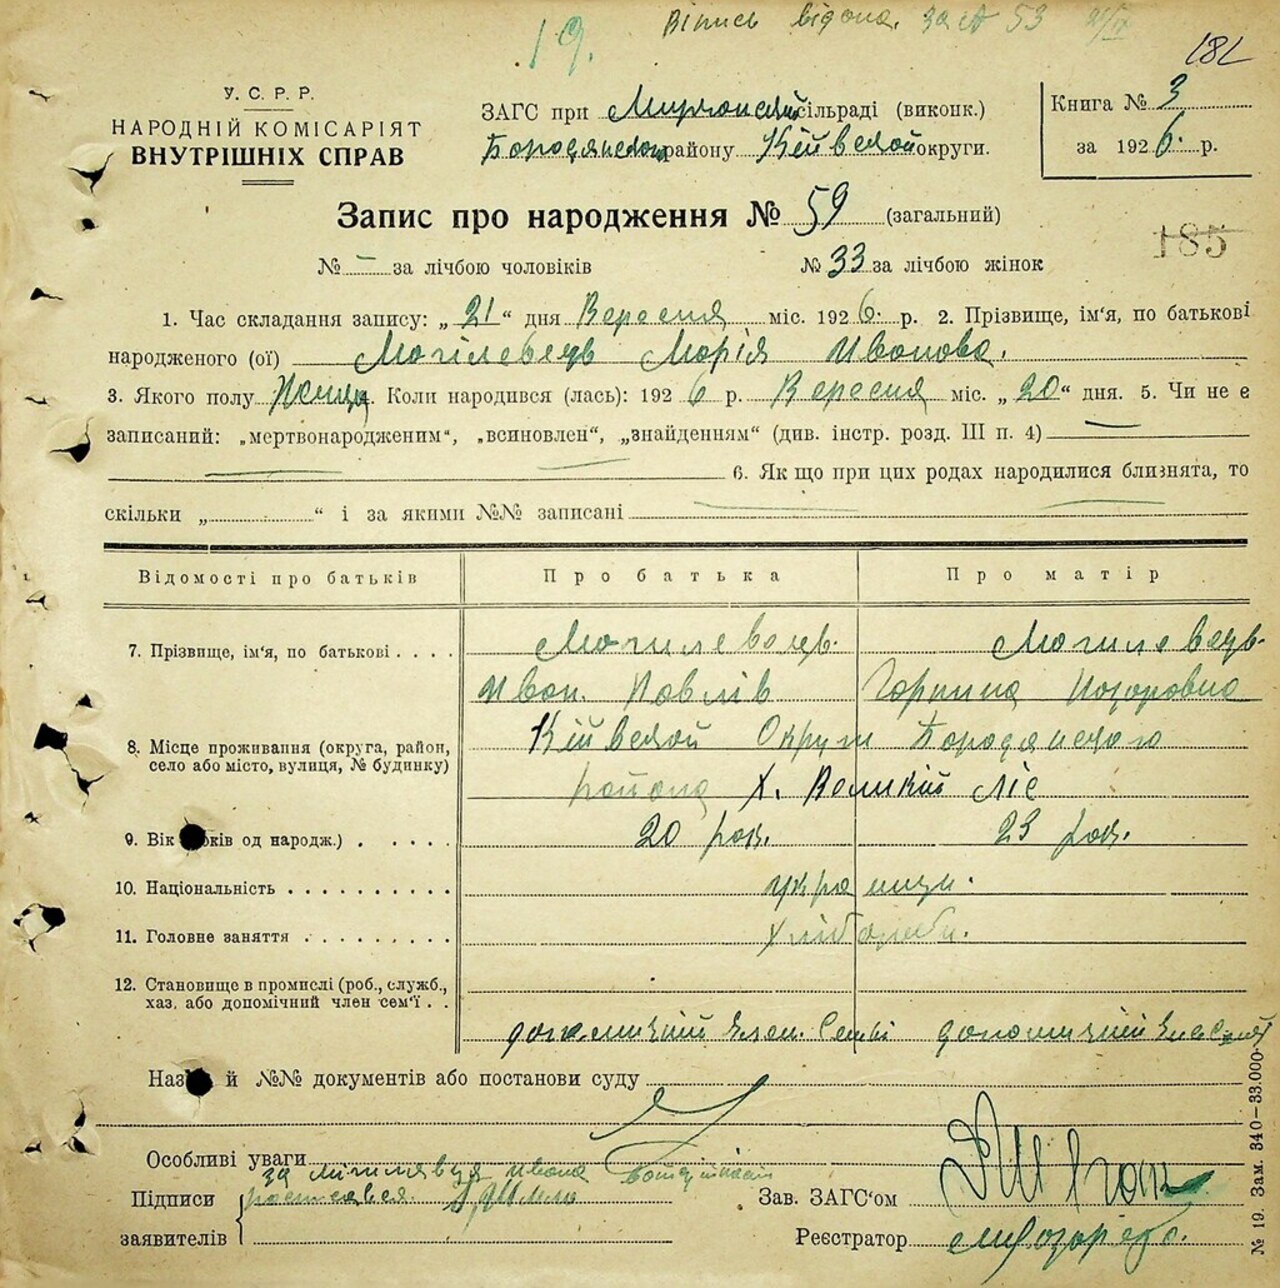 19. Віпись видана. за № 53
182
У. С. Р. Р.
НАРОДНІЙ КОМІСАРІЯТ
ВНУТРІШНІХ СПРАВ
ЗАГС при сільраді (виконк.)
Бородянском району Київської округи.
Книга № 3
за 1926. р.
Запис про народження № 59 (загальний)
185
№ – за лічбою чоловіків № 33 за лічбою жінок
1. Час складання запису: „21“ дня Вересня міс. 1926. р. 2. Прізвище, ім'я, по батькові
народженого (ої) Могілевець Марія Иванова.
3. Якого полу Женщ. Коли народився (лась): 1926 р. Вересня міс. „20“ дня. 5. Чи не є
записаний: „мертвонародженим“, „всиновлен“, „знайденням“ (див. інстр. розд. III п. 4) —
6. Як що при цих родах народилися близнята, то
скільки „ “ і за якими №№ записані
Відомості про батьків Про батька Про матір
7. Прізвище, ім'я, по батькові . . . . Могилевець. Могилевець.
Иван. Павлів Горпина
8. Місце проживання (округа, район,
село або місто, вулиця, № будинку)
Київской Округи Бородянского
района Х. Великий Ліс
9. Вік ків од народж.) . . . . . 20 рок. 23 рок.
10. Національність . . . . . . . . . . україици.
11. Головне заняття . . . . . . . . . Хліборобы.
12. Становище в промислі (роб., служб.,
хаз. або допомічний член сем'ї . .
допомицкий член Семьї допомицкий член Семьї
Наз й №№ документів або постанови суду
Особливі уваги
за Могилевця Ивана
Підписи росписався
заявителів
Зав. ЗАГС'ом
Реєстратор
№ 19. Зам. 340—33.000.